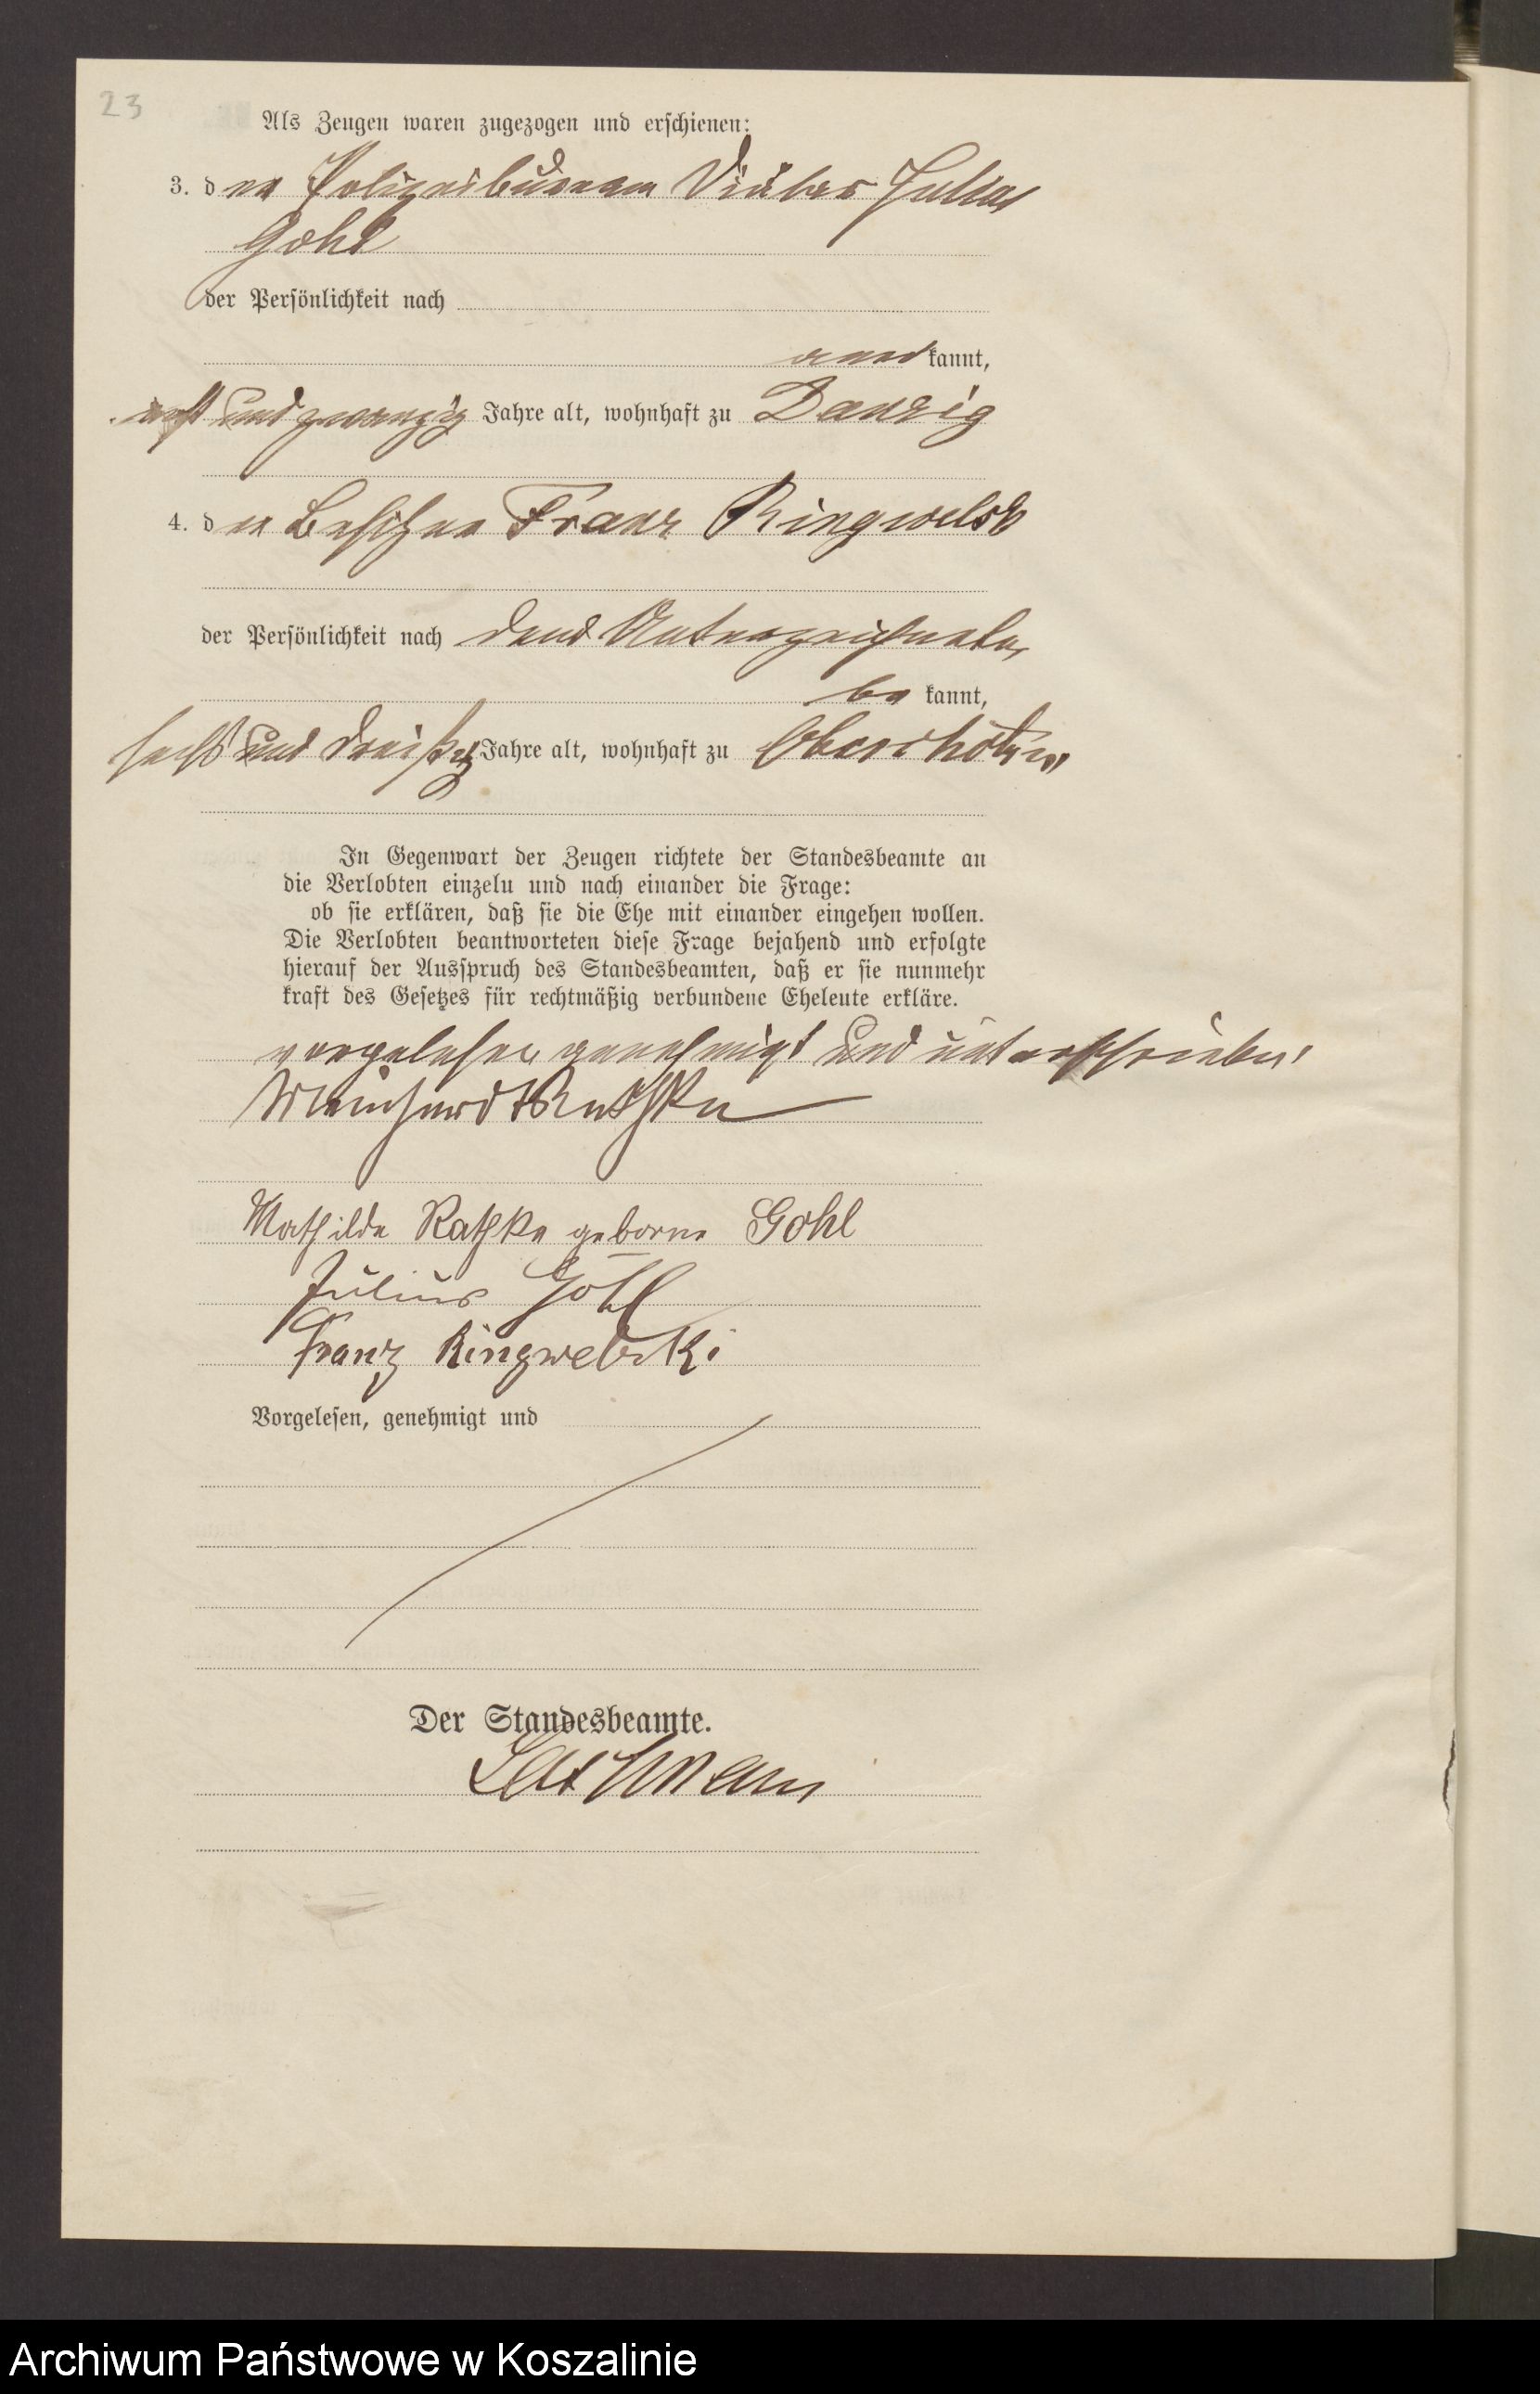 23
Als Zeugen waren zugezogen und erschienen:
3. der Polizeibureau Julius
Gohl
der Persönlichkeit nach
aner kannt,
und zwanzig Jahre alt, wohnhaft zu Danzig
4. der Besitzer Franz Ringwelsk
der Persönlichkeit nach Unterzeichneten
be kannt,
sechs und dreißig Jahre alt, wohnhaft zu
In Gegenwart der Zeugen richtete der Standesbeamte an
die Verlobten einzeln und nach einander die Frage:
ob sie erklären, daß sie die Ehe mit einander eingehen wollen.
Die Verlobten beantworteten diese Frage bejahend und erfolgte
hierauf der Ausspruch des Standesbeamten, daß er sie nunmehr
kraft des Gesetzes für rechtmäßig verbundene Eheleute erkläre.
vorgelesen genehmigt und unterschrieben
Meinhard Rathke
Mathilde Rathke geborne Gohl
Julius Gohl
Franz Ringwelski
Vorgelesen, genehmigt und
Der Standesbeamte.
Archiwum Państwowe w Koszalinie